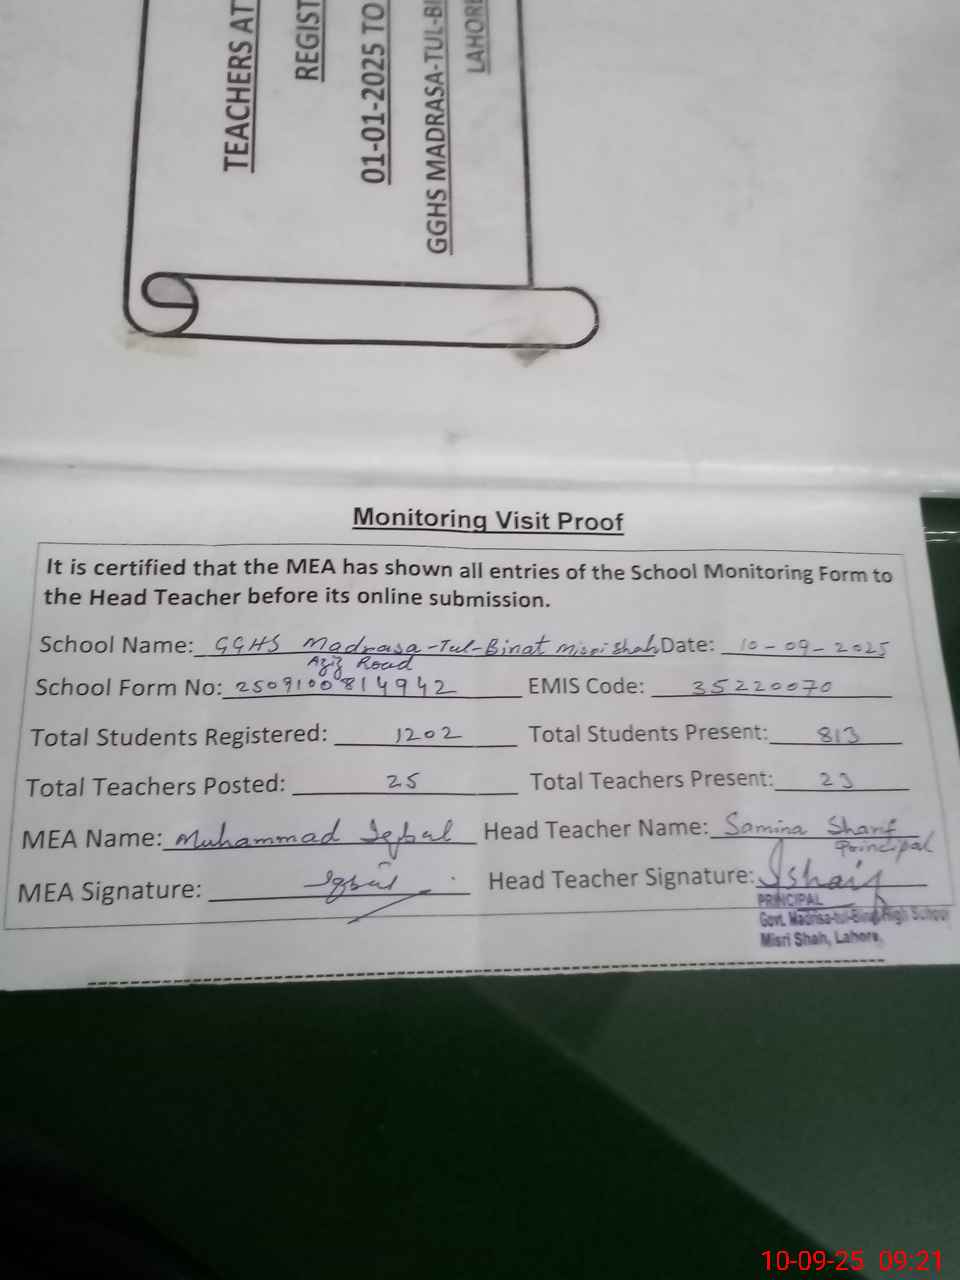 TEACHERS AT
REGIST
01-01-2025 TO
GGHS MADRASA-TUL-BI
LAHORE
Monitoring Visit Proof
It is certified that the MEA has shown all entries of the School Monitoring Form to
the Head Teacher before its online submission.
School Name: GGHS Madrasa-Tul-Binat Misri Shah Date: 10-09-2025
Aziz Road
School Form No: 2509100814942 EMIS Code: 35220070
Total Students Registered: 1202 Total Students Present: 813
Total Teachers Posted: 25 Total Teachers Present: 23
MEA Name: Muhammad Iqbal Head Teacher Name: Samina Sharif
Principal
MEA Signature: Iqbal Head Teacher Signature: SSharif
PRINCIPAL
Govt. Madrisa-tul-Binat High School
Misri Shah, Lahore.
10-09-25 09:21